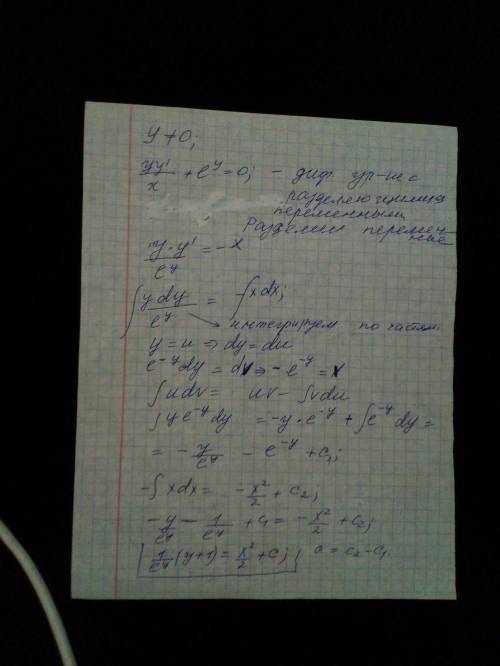 y≠0;
yy'/x + e^y = 0; – диф. ур-ние с
разделяющимися
переменными
Разделим перемен-
ные
y·y'/e^y = -x
∫ y dy/e^y = -∫xdx;
интегрируем по частям
y = u ⇒ dy = du
e^-y dy = dv ⇒ -e^-y = v
∫udv = uv - ∫vdu
∫ye^-y dy = -y·e^-y + ∫e^-y dy =
= -y/e^y - e^-y + c₁;
-∫xdx = -x²/2 + c₂;
-y/e^y - 1/e^y + c₁ = -x²/2 + c₂;
1/e^y (y+1) = x²/2 + c; c = c₂ - c₁.